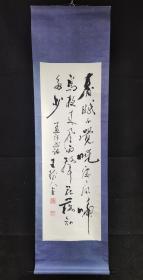 春眠不覺曉處々聞啼
鳥夜來風雨聲花落知
多少
王